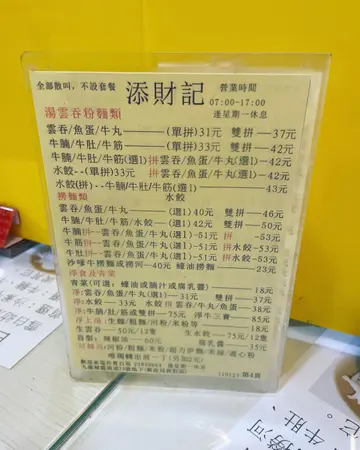 全部散叫，不設套餐
添財記
營業時間
07:00-17:00
逢星期一休息
湯雲吞粉麵類
雲吞/魚蛋/牛丸———(單拼)31元 雙拼—37元
牛腩/牛肚/牛筋———(單拼)33元 雙拼—42元
牛腩/牛肚/牛筋(選1)拼雲吞/魚蛋/牛丸(選1)—42元
水餃--(單拼)33元 拼雲吞/魚蛋/牛丸(選1)—42元
水餃(拼)--牛腩/牛肚/牛筋(選1)————43元
撈麵類
水餃
雲吞/魚蛋/牛丸———(選1)40元 雙拼—46元
牛腩/牛肚/牛筋/水餃—(選1)42元 雙拼—50元
牛腩拼—雲吞/魚蛋/牛丸(選1)—51元 拼 —53元
牛筋拼—雲吞/魚蛋/牛丸(選1)—51元 拼水餃—53元
牛肚拼—雲吞/魚蛋/牛丸(選1)—51元 拼水餃—53元
沙嗲牛撈麵或撈河—40元 蠔油撈麵———23元
淨食及青菜
青菜(可選：蠔油或腩汁或腐乳醬)———18元
淨:雲吞/魚蛋/牛丸(選1)—31元 雙拼——37元
淨:水餃— 33元 水餃拼 雲吞/魚蛋/牛丸—38元
淨:牛腩/牛肚/筋或雙拼—75元 淨牛三寶——85元
淨上湯：生麵/粗麵/河粉/米粉等———18元
生雲吞——50元/12隻 生水餃——75元/12隻
自製：辣椒油——60元 腐乳醬——35元